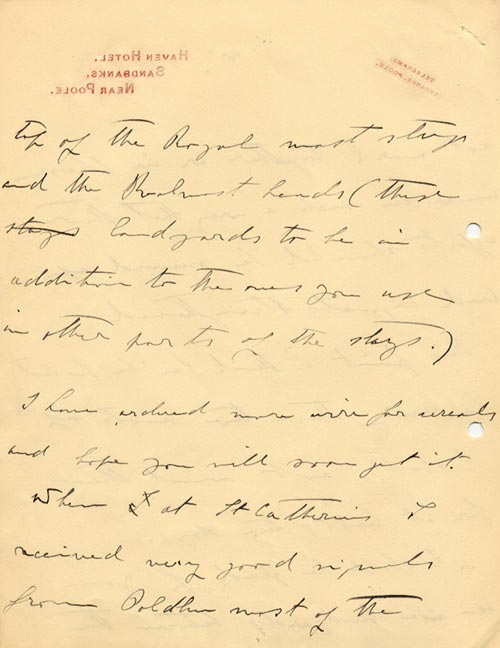 HAVEN HOTEL,
SANDBANKS,
NEAR POOLE.
top of the Royal mast stays
and the mast heads (these
stays landyards to be in
addition to the ones you use
in other parts of the stays.)
I have ordered more wire for aerials
and hope you will soon get it.
When I at St Catherines I
received very good signals
from Poldhu most of the